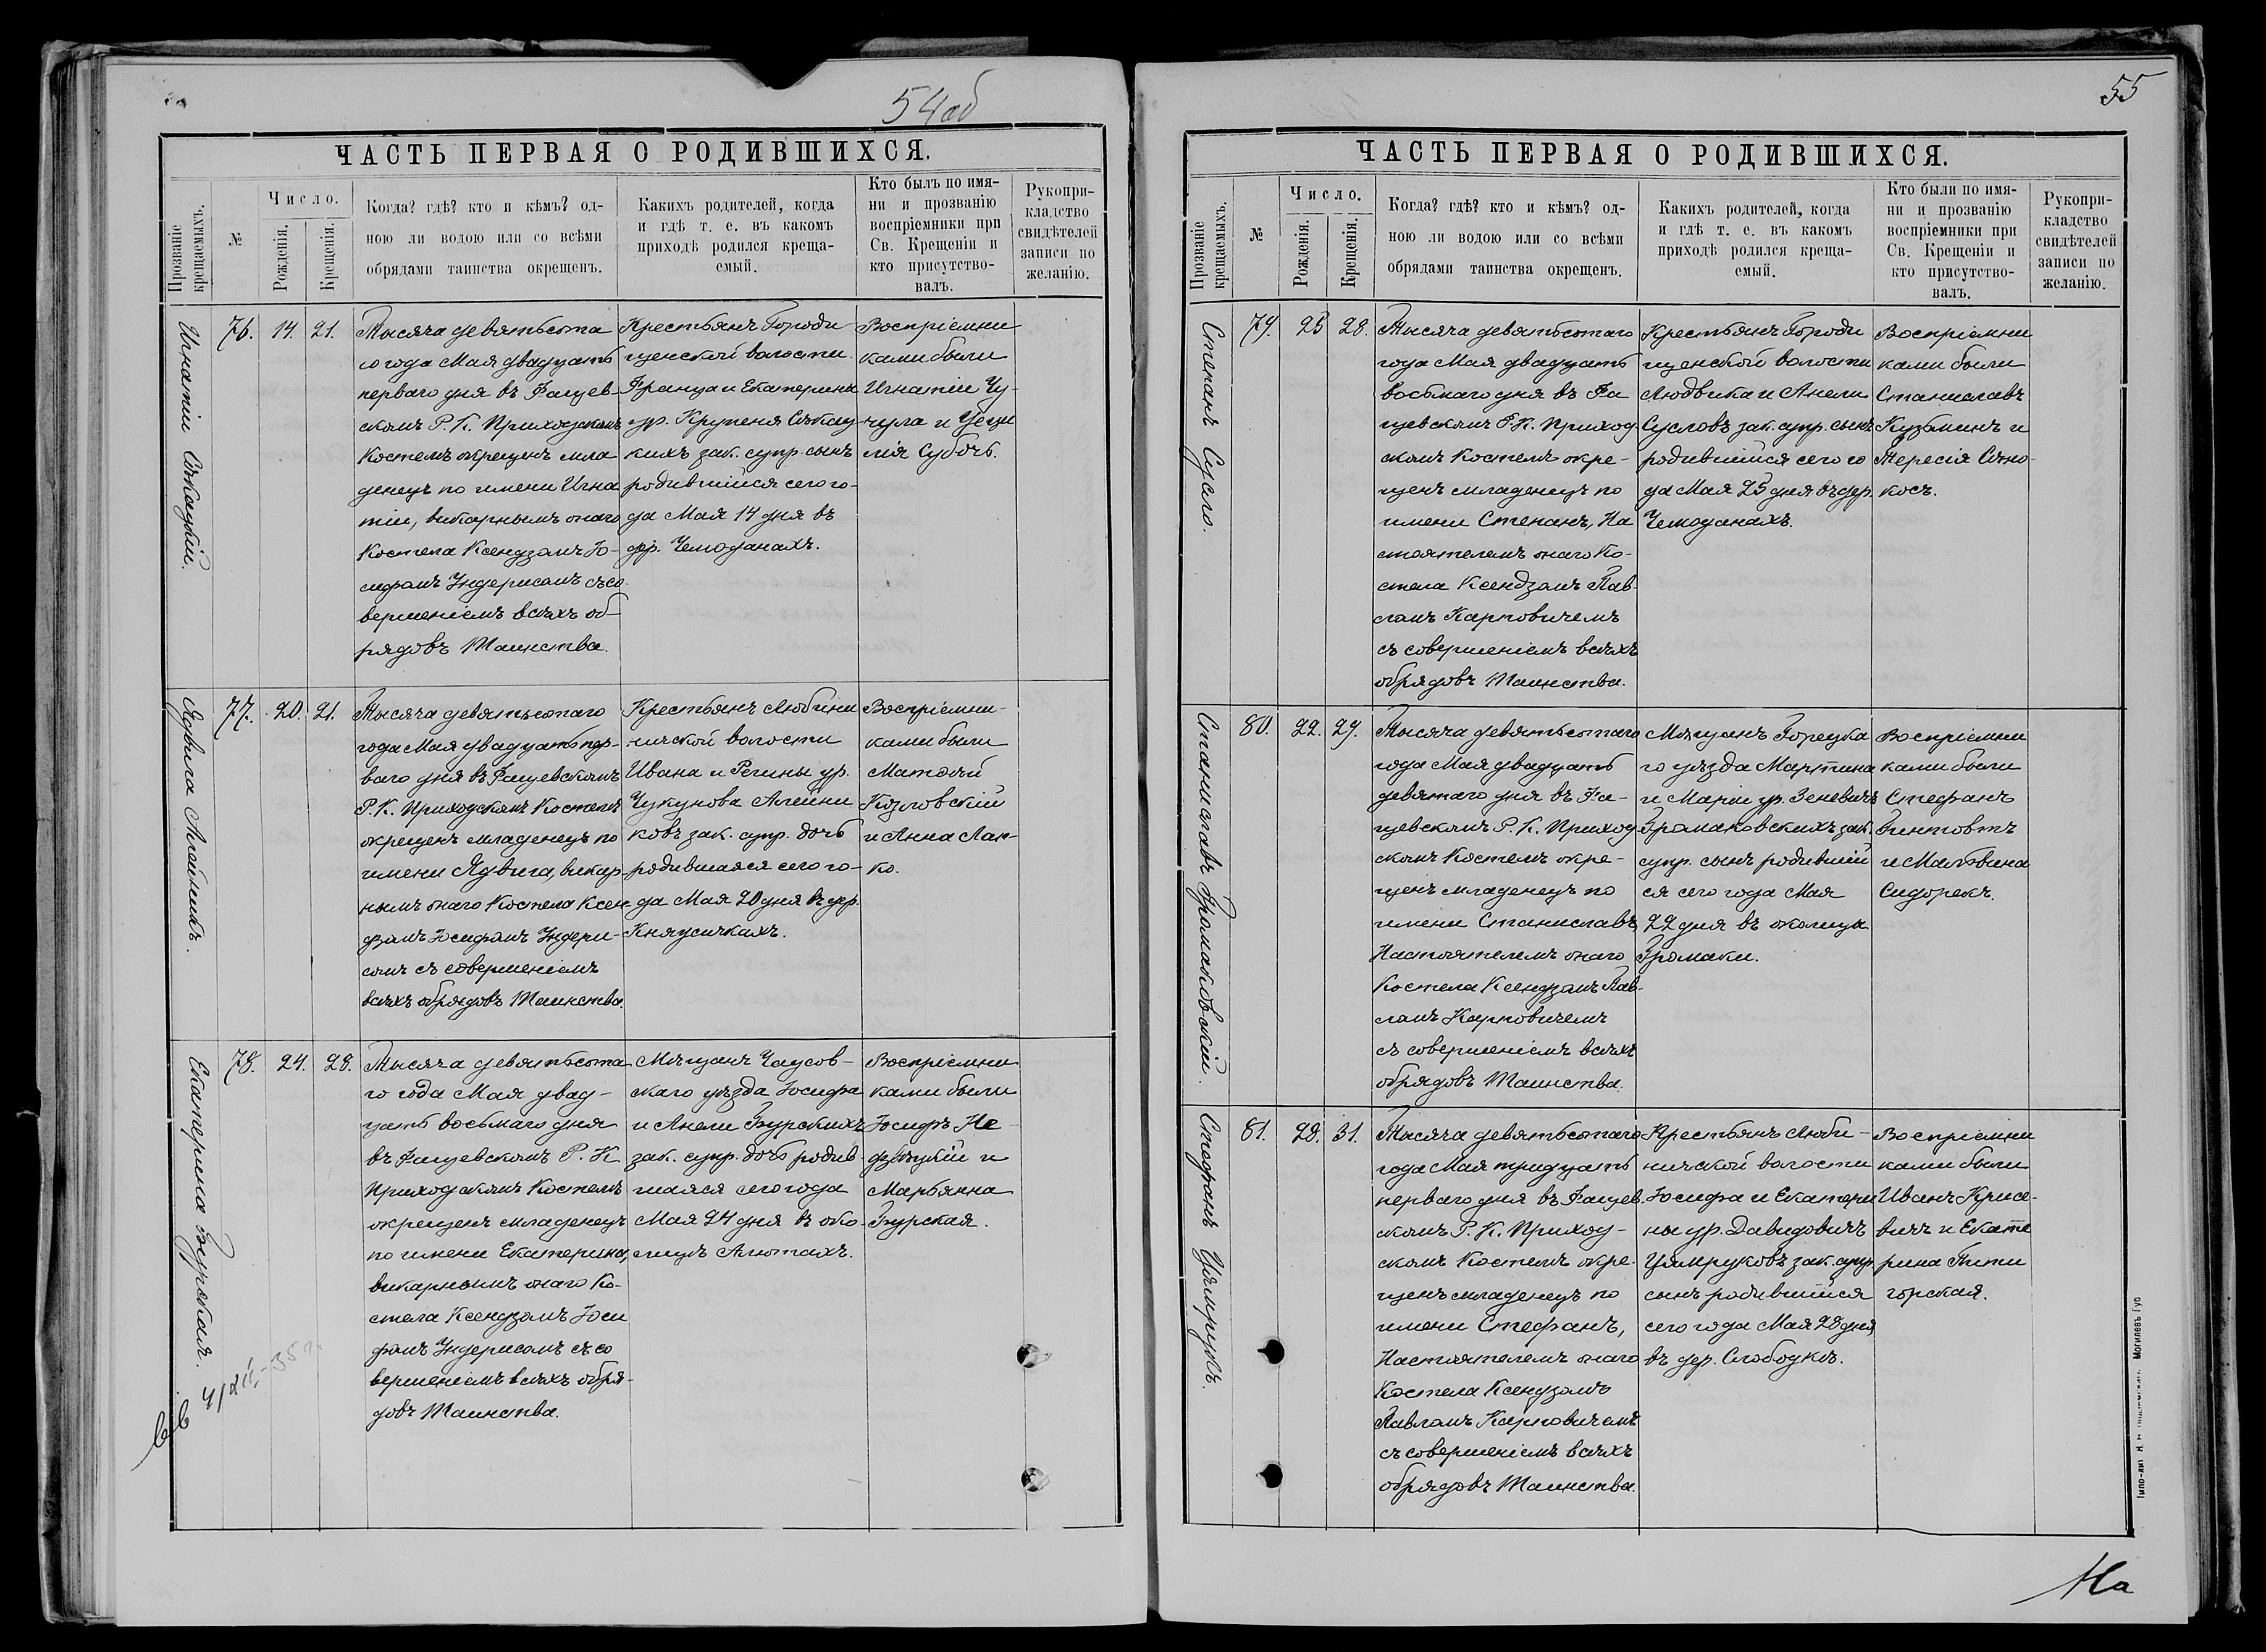 54 об
ЧАСТЬ ПЕРВАЯ О РОДИВШИХСЯ.
Прозваніе крещаемыхъ.
№
Число.
Рожденія.
Крещенія.
Когда? гдѣ? кто и кѣмъ? од-
ною ли водою или со всѣми
обрядами таинства окрещенъ.
Какихъ родителей, когда
и гдѣ т. е. въ какомъ
приходѣ родился креща-
емый.
Кто былъ по имя-
ни и прозванію
воспріемники при
Св. Крещеніи и
кто присутство-
валъ.
Рукопри-
кладство
свидѣтелей
записи по
желанію.
Игнатій Сѣкацкій.
76. 14. 21.
Тысяча девятьсота
го года Мая двадцать
перваго дня въ Фащев-
скомъ Р. К. Приходскомъ
Костелѣ окрещенъ мла
денецъ по имени Игна
тій, викарнымъ онаго
Костела Ксендзомъ Іо-
сифомъ Эндерисомъ съ со
вершеніемъ всѣхъ об-
рядовъ Таинства.
Крестьянъ Городи-
щенской волости
Франца и Екатерины
ур. Крупеня Сѣкац-
кихъ зак. супр. сынъ
родившійся сего го-
да Мая 14 дня въ
дер. Чемоданахъ.
Воспріемни
ками были
Игнатій Чу-
чула и Цеци
лія Субочь.
Ядвига Алейникъ.
77. 20. 21.
Тысяча девятьсотаго
года Мая двадцать пер-
ваго дня въ Фащевскомъ
Р. К. Приходскомъ Костелѣ
окрещенъ младенецъ по
имени Ядвига, викар-
нымъ онаго Костела Ксен
дзомъ Іосифомъ Эндери-
сомъ съ совершеніемъ
всѣхъ обрядовъ Таинства.
Крестьянъ Любини
чской волости
Ивана и Регины ур.
Чукунова Алейни
ковъ зак. супр. дочь
родившаяся сего го-
да Мая 20 дня въ дер.
Княжичкахъ.
Воспріемни-
ками были
Матвѣй
Козловскій
и Анна Лап-
ко.
Екатерина Бурская.
78. 24. 28.
Тысяча девятьсота
го года Мая двад-
цать восьмаго дня
въ Фащевскомъ Р. К.
Приходскомъ Костелѣ
окрещенъ младенецъ
по имени Екатерина,
викарнымъ онаго Ко-
стела Ксендзомъ Іоси
фомъ Эндерисомъ съ со
вершеніемъ всѣхъ обря-
довъ Таинства.
Мѣщанъ Чаусов-
скаго уѣзда Іосифа
и Анели Бурскихъ
зак. супр. дочь родив-
шаяся сего года
Мая 24 дня въ око-
лицѣ Алютахъ.
Воспріемни
ками были
Іосифъ Не-
фѣцкій и
Марьянна
Бурская.
55
ЧАСТЬ ПЕРВАЯ О РОДИВШИХСЯ.
Прозваніе крещаемыхъ.
№
Число.
Рожденія.
Крещенія.
Когда? гдѣ? кто и кѣмъ? од-
ною ли водою или со всѣми
обрядами таинства окрещенъ.
Какихъ родителей, когда
и гдѣ т. е. въ какомъ
приходѣ родился креща-
емый.
Кто были по имя-
ни и прозванію
воспріемники при
Св. Крещеніи и
кто присутство-
валъ.
Рукопри-
кладство
свидѣтелей
записи по
желанію.
Степанъ Сусло.
79. 25 28.
Тысяча девятьсотаго
года Мая двадцать
восьмаго дня въ Фа
щевскомъ Р. К. Приход
скомъ Костелѣ окре-
щенъ младенецъ по
имени Степанъ, На
стоятелемъ онаго Ко-
стела Ксендзомъ Пав-
ломъ Карповичемъ
съ совершеніемъ всѣхъ
обрядовъ Таинства.
Крестьянъ Городи
щенской волости
Людвика и Анели
Сусловъ зак. супр. сынъ
родившійся сего го
да Мая 25 дня въ дер.
Чемоданахъ.
Воспріемни
ками были
Станиславъ
Кузьминъ и
Тересія Сѣно-
косъ.
Станиславъ Громаковскій.
80. 22. 29.
Тысяча девятьсотаго
года Мая двадцать
девятаго дня въ Фа-
щевскомъ Р. К. Приход
скомъ Костелѣ окре-
щенъ младенецъ по
имени Станиславъ,
Настоятелемъ онаго
Костела Ксендзомъ Пав-
ломъ Карповичемъ
съ совершеніемъ всѣхъ
обрядовъ Таинства.
Мѣщанъ Горецка
го уѣзда Мартина
и Маріи ур. Зеневичъ
Громаковскихъ зак.
супр. сынъ родившій
ся сего года Мая
22 дня въ околицѣ
Громаки.
Воспріемни
ками были
Стефанъ
Гинтовтъ
и Мальвина
Сидорекъ.
Стефанъ Цямрукъ.
81. 28. 31.
Тысяча девятьсотаго
года Мая тридцать
перваго дня въ Фащев-
скомъ Р. К. Приход-
скомъ Костелѣ окре-
щенъ младенецъ по
имени Стефанъ,
Настоятелемъ онаго
Костела Ксендзомъ
Павломъ Карповичемъ
съ совершеніемъ всѣхъ
обрядовъ Таинства.
Крестьянъ Люби-
ничской волости
Іосифа и Екатери
ны ур. Давидовичъ
Цямруковъ зак. супр.
сынъ родившійся
сего года Мая 28 дня
въ дер. Слободкѣ.
Воспріемни
ками были
Иванъ Крисе-
вичъ и Екате
рина Пяти
горская.
Могилевъ Губ
На